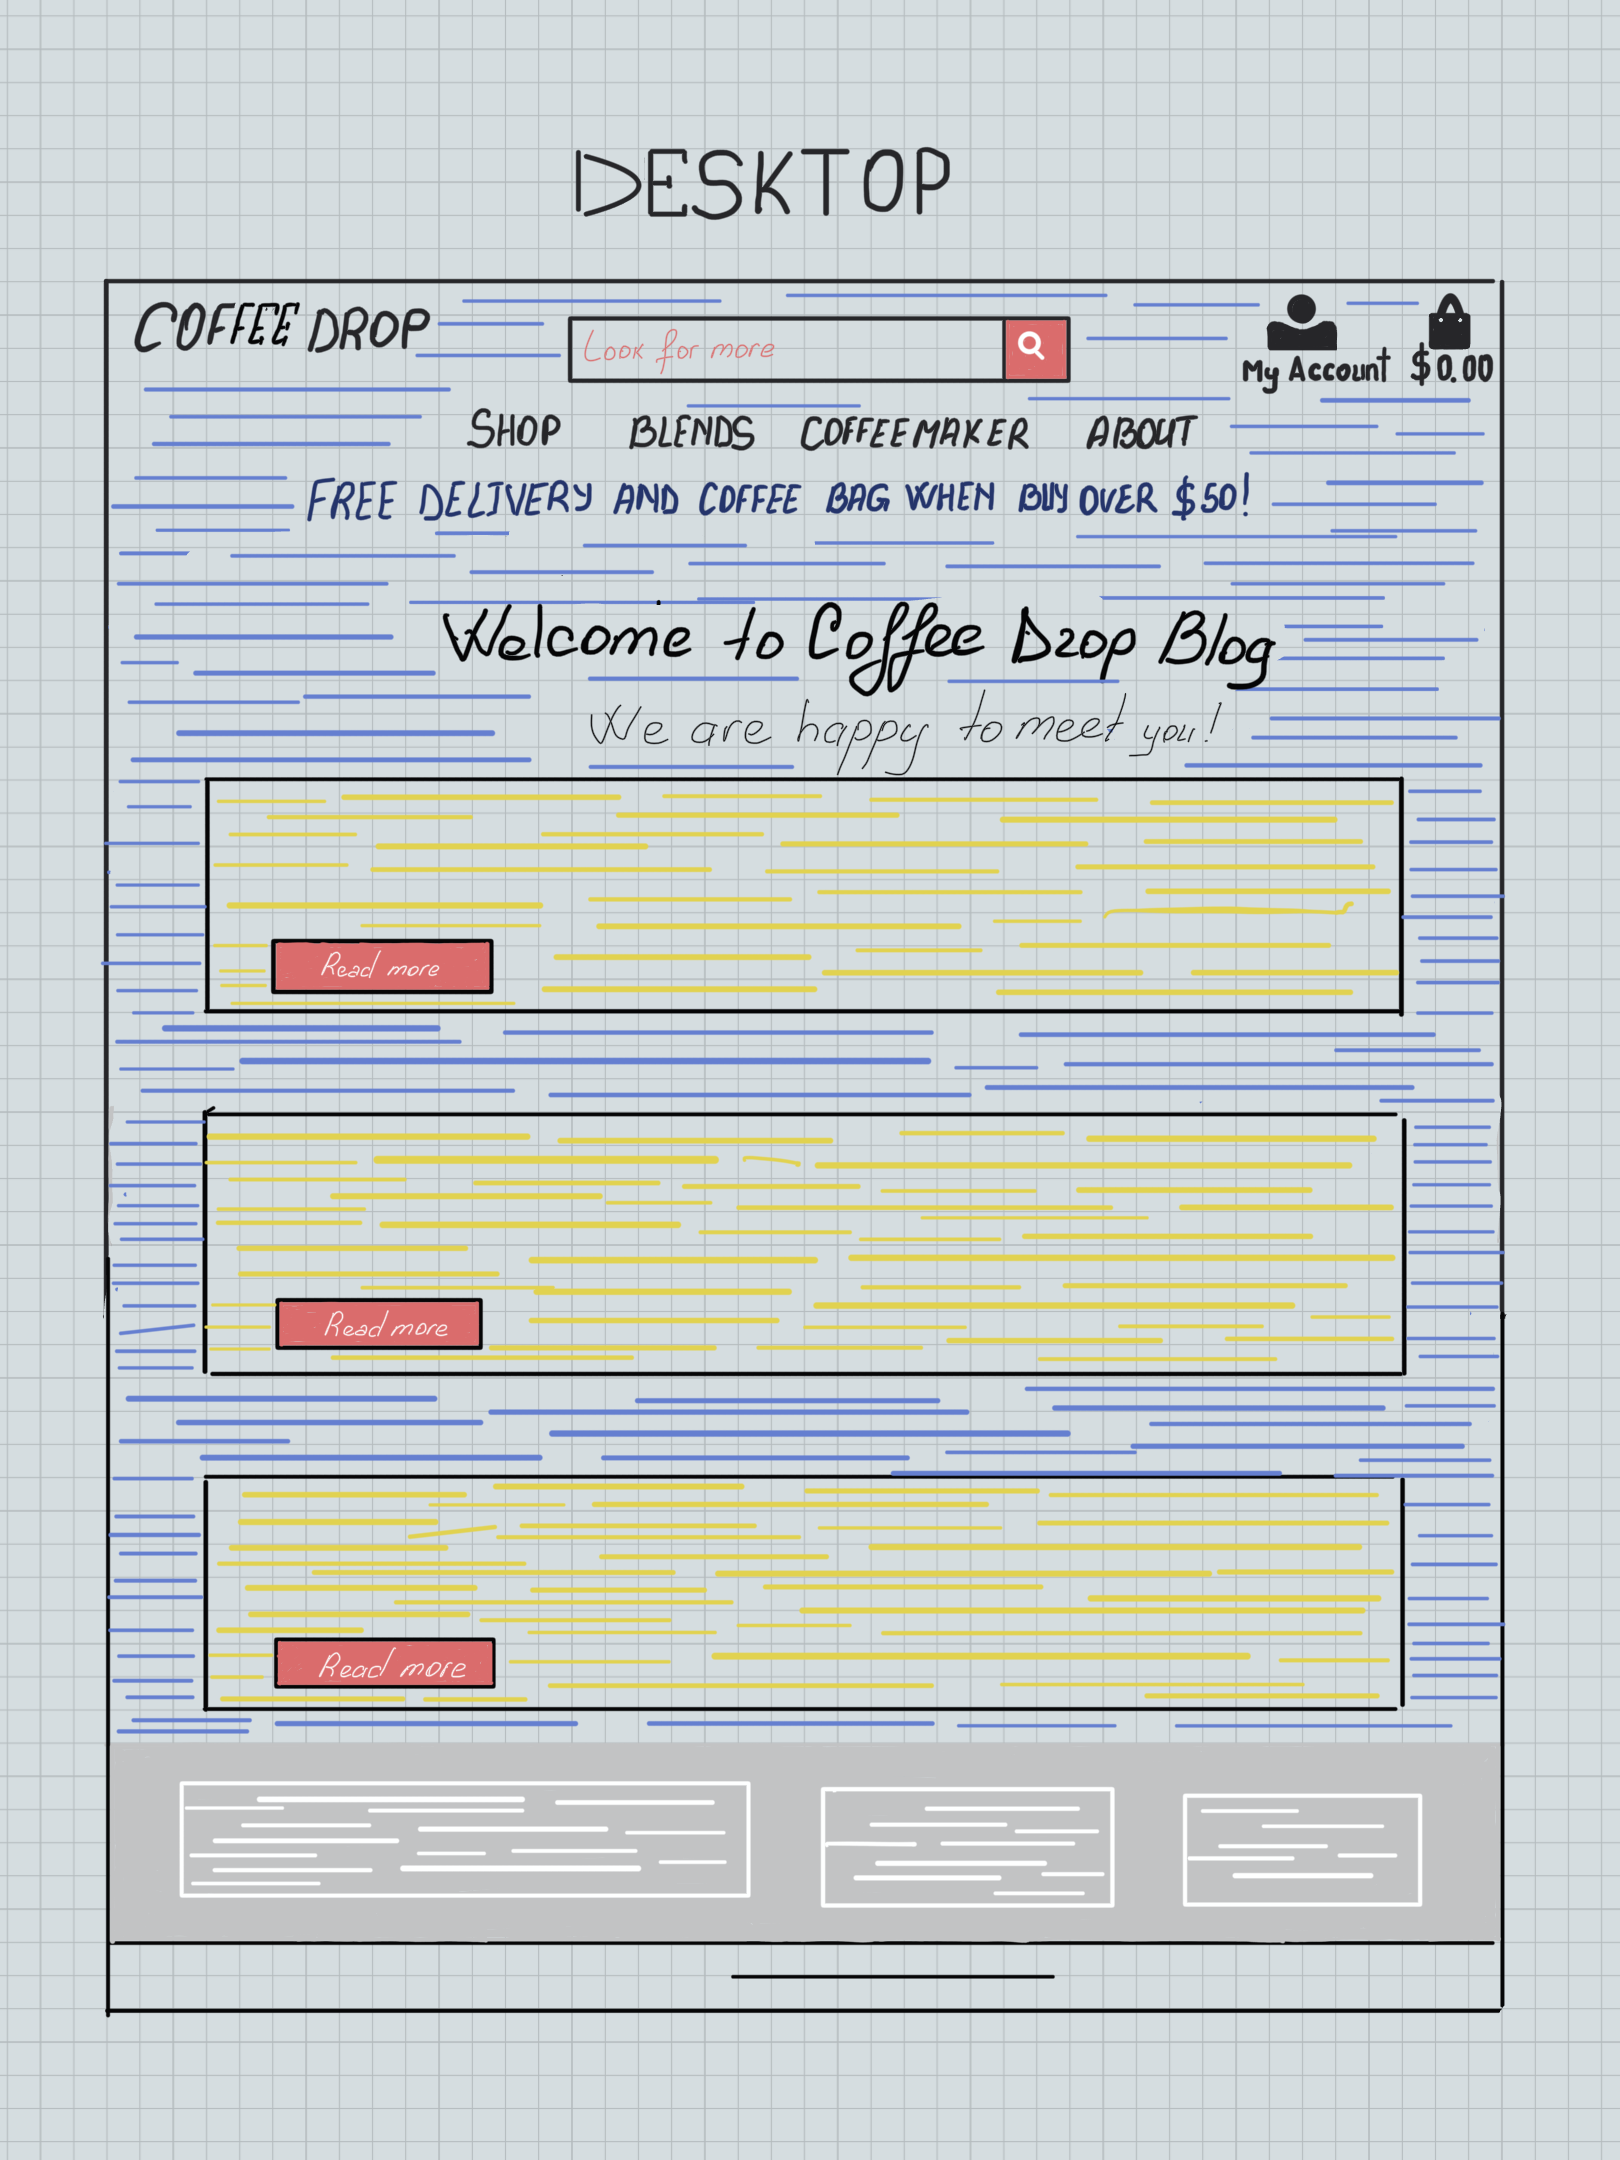 DESKTOP
COFFEE DROP
Look for more
My Account $0.00
SHOP BLENDS COFFEEMAKER ABOUT
FREE DELIVERY AND COFFEE BAG WHEN BUY OVER $50!
Welcome to Coffee Drop Blog
We are happy to meet you!
Read more
Read more
Read more